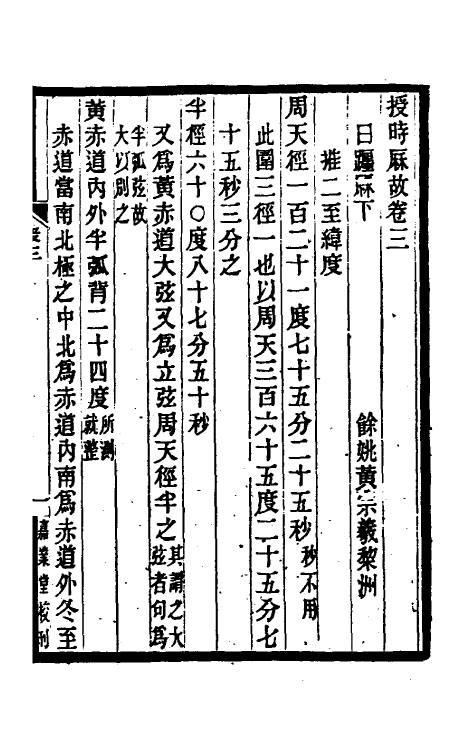 授時厤故卷三
日躔厤下 餘姚黃宗羲黎洲
推二至緯度
周天徑一百二十一度七十五分二十五秒秒不用
此圍三徑一也以周天三百六十五度二十五分七
十五秒三分之
半徑六十〇度八十七分五十秒
又爲黃赤道大弦又爲立弦周天徑半之其謂之大弦者句爲
半弧弦故大以別之
黃赤道內外半弧背二十四度所測就整
赤道當南北極之中北爲赤道內南爲赤道外冬至
嘉業堂校刊